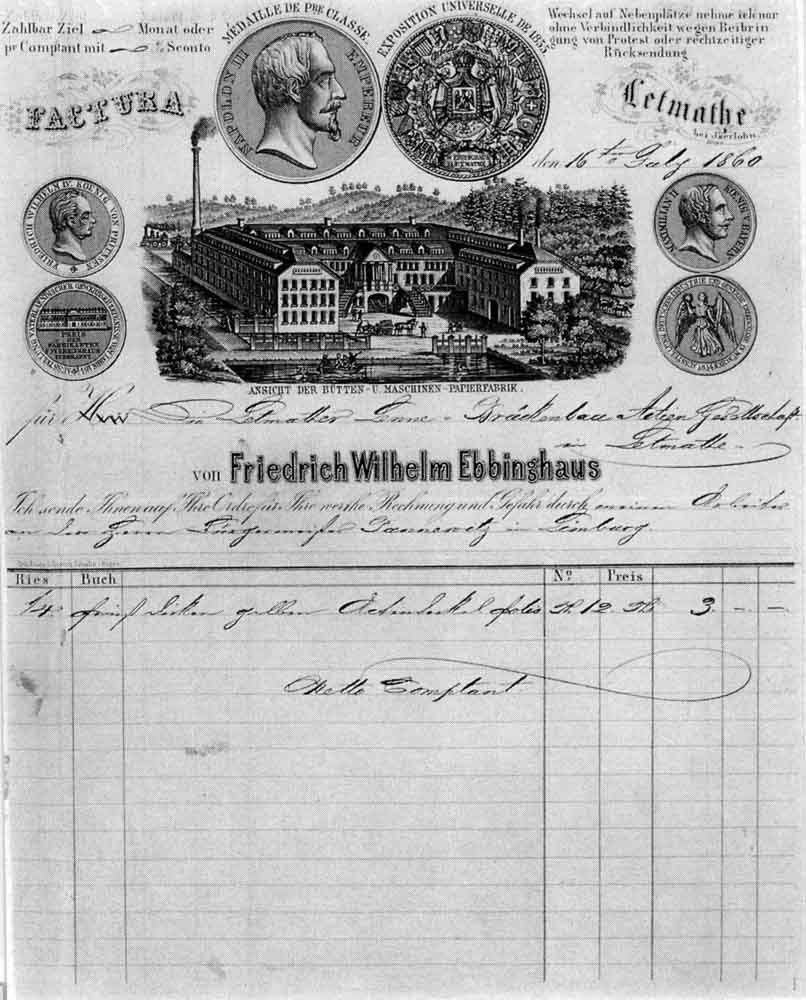 Zahlbar Ziel Monat oder
pr Comptant mit % Sconto
FACTURA
MÉDAILLE DE PRE CLASSE
NAPOLEON III EMPEREUR
EXPOSITION UNIVERSELLE DE 1855
Wechsel auf Nebenplätze nehme ich nur
ohne Verbindlichkeit wegen Beibrin
gung von Protest oder rechtzeitiger
Rücksendung
Letmathe
bei Iserlohn.
den 16te July 1860
FRIEDRICH WILHELM IV KOENIG VON PREUSSEN
MAXIMILIAN II KOENIG V. BAYERN
ANSICHT DER BÜTTEN- U. MASCHINEN-PAPIERFABRIK.
für Letmather Lenne-Brückenbau Actien Gesellschaft
in Letmathe
von Friedrich Wilhelm Ebbinghaus
Ich sende Ihnen auf Ihre Ordre für Ihre werthe Rechnung und Gefahr durch meinen Arbeiter
an den Herrn Bürgermeister in Limburg.
Ries Buch No Preis
1/4 dicken gelben Actendeckel 12 3 - -
Netto Comptant